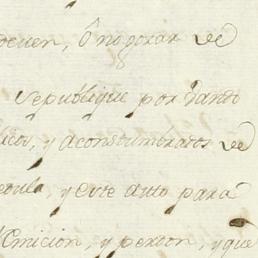 deven, ô no gozar de
Sepublique por Vando
icos, y aconstumbrados de
edula, y este auto para
emicion, y perdon, y que